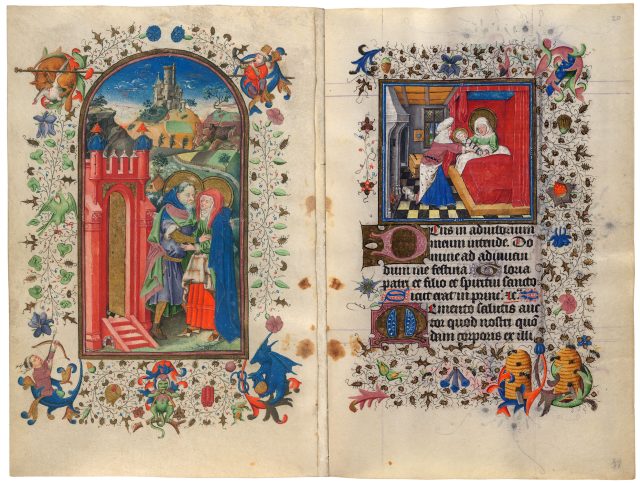 Deus in adiutorium
meum intende. Do
mine ad adiuuan
dum me festina Gloria
patri et filio et spiritui sancto
Sicut erat in princ. &c.
Memento salutis auc
tor quod nostri quō
dam corporis ex illi